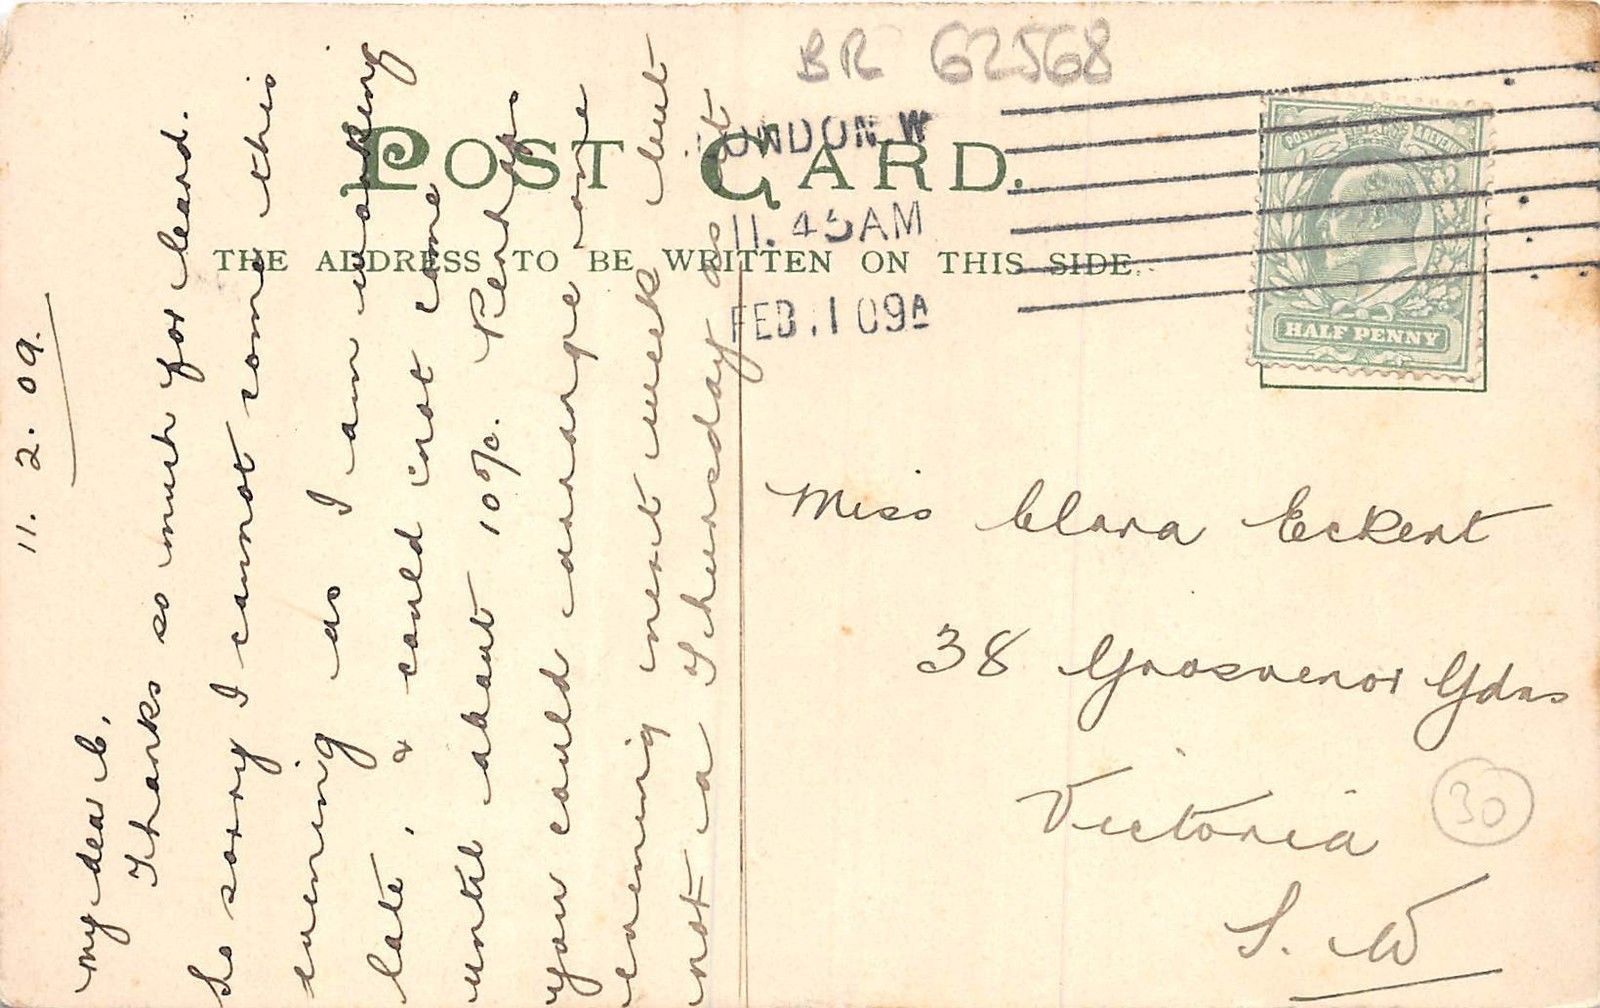 BR 62568
POST CARD.
THE ADDRESS TO BE WRITTEN ON THIS SIDE.
LONDON. W
11.45AM
FEB.1 09A
POSTAGE & REVENUE
HALF PENNY
11. 2. 09.
My dear C,
Thanks so much for leard.
So sorry I cannot come this
evening as I am working
late, & could not come
until about 10 o/c. Perhaps
you could arrange one
evening next week but
not a Thursday as at
Miss Clara Eckert
38 Grosvenor Gdns
Victoria
S. W
30